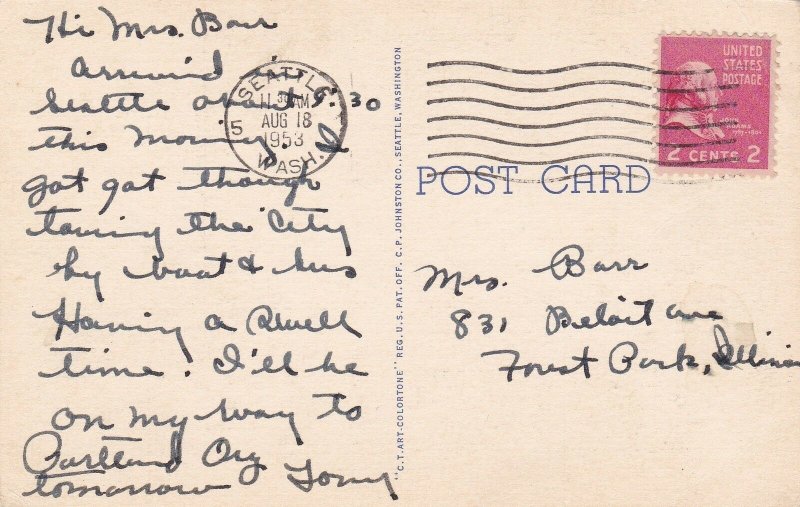 Hi Mrs. Barr
Arrived
Seattle about 9:30
this morning. I
got got though
touring the City
by boat & bus
Having a Swell
time. I'll be
on my way to
Portland Org
tomorrow Tony
SEATTLE
11 30 AM
AUG 18
1953
5
WASH.
"C.T. ART-COLORTONE" REG. U.S. PAT. OFF. C. P. JOHNSTON CO., SEATTLE, WASHINGTON
UNITED
STATES
POSTAGE
JOHN
ADAMS
2 CENTS 2
POST CARD
Mrs. Barr
831 Beloit ave
Forest Park, Illinois